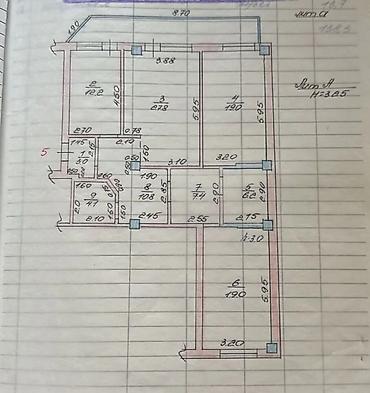 8.70
1.90
Лит А
Лит А
H=3.25
3.88
2
12.2
4.50
3
27.3
5.95
4
19.0
5.95
2.70
0.78
1.45
2.10
1.50
3.10
3.20
5
1
3.0
2.15
1.60
2.60
1.90
9
4.1
2.0
2.10
1.50
8
10.8
2.85
7
7.4
2.90
5
6.2
2.90
2.45
2.55
2.15
4.30
6
19.0
5.95
3.20